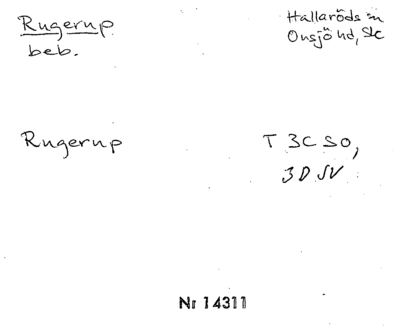 Rugerup
beb.
Hallaröds sn
Onsjö hd, Sk
Rugerup
T 3C SO,
3D SV
Nr 14311